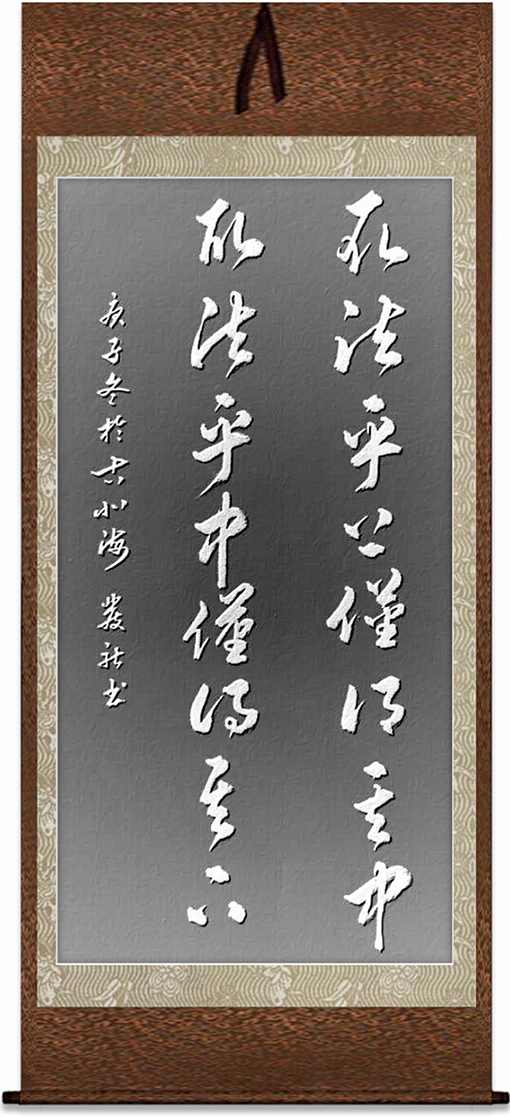 取法乎上僅得其中
取法乎中僅得其下
庚子冬於古北海 書